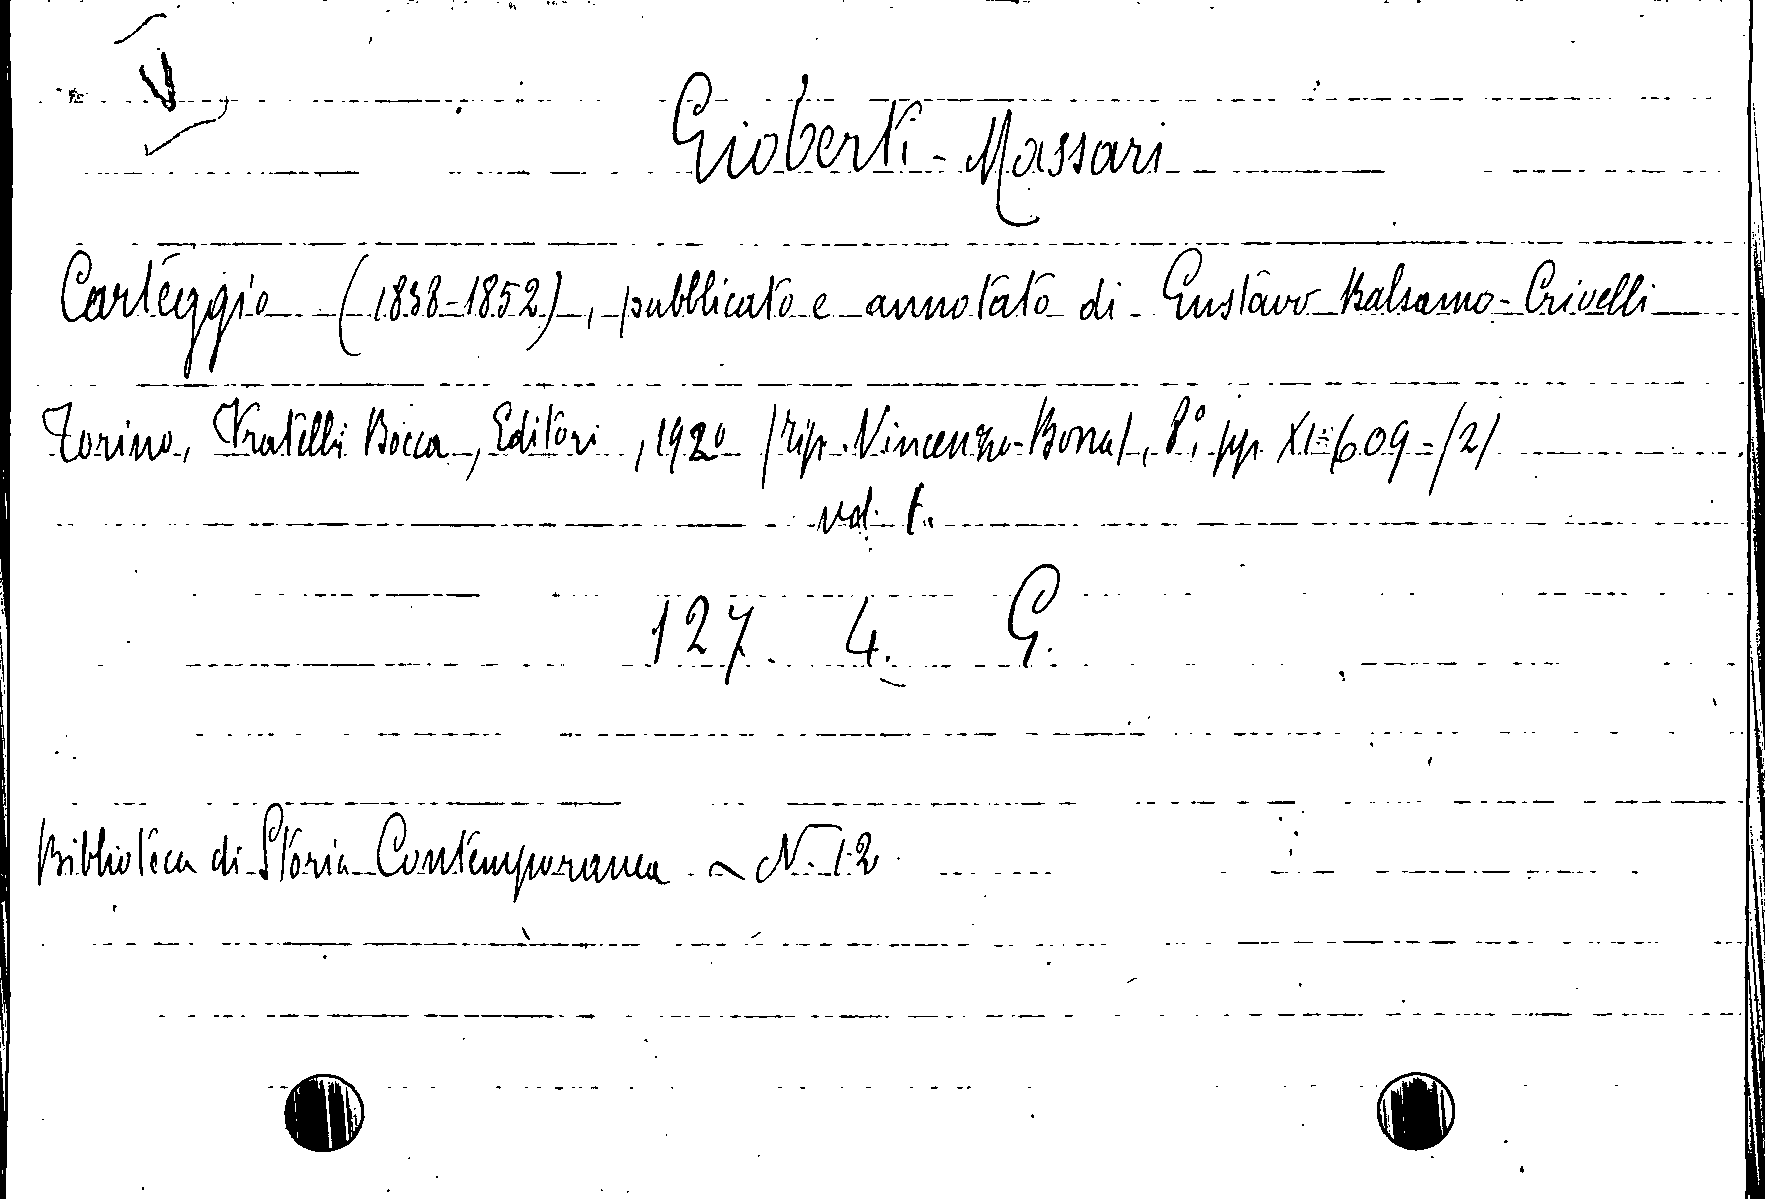 V
Gioberti - Massari
Carteggio (1838-1852), pubblicato e annotato di Gustavo Balsamo-Crivelli
Torino, Fratelli Bocca, Editori, 1920 /Tip. Vincenzo Bona/, 8°, pp. XI-609-/2/
vol. 1.
127. 4. G.
Biblioteca di Storia Contemporanea ~ N. 12